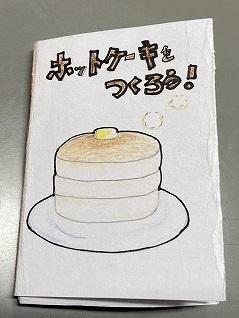 ホットケーキを
つくろう!